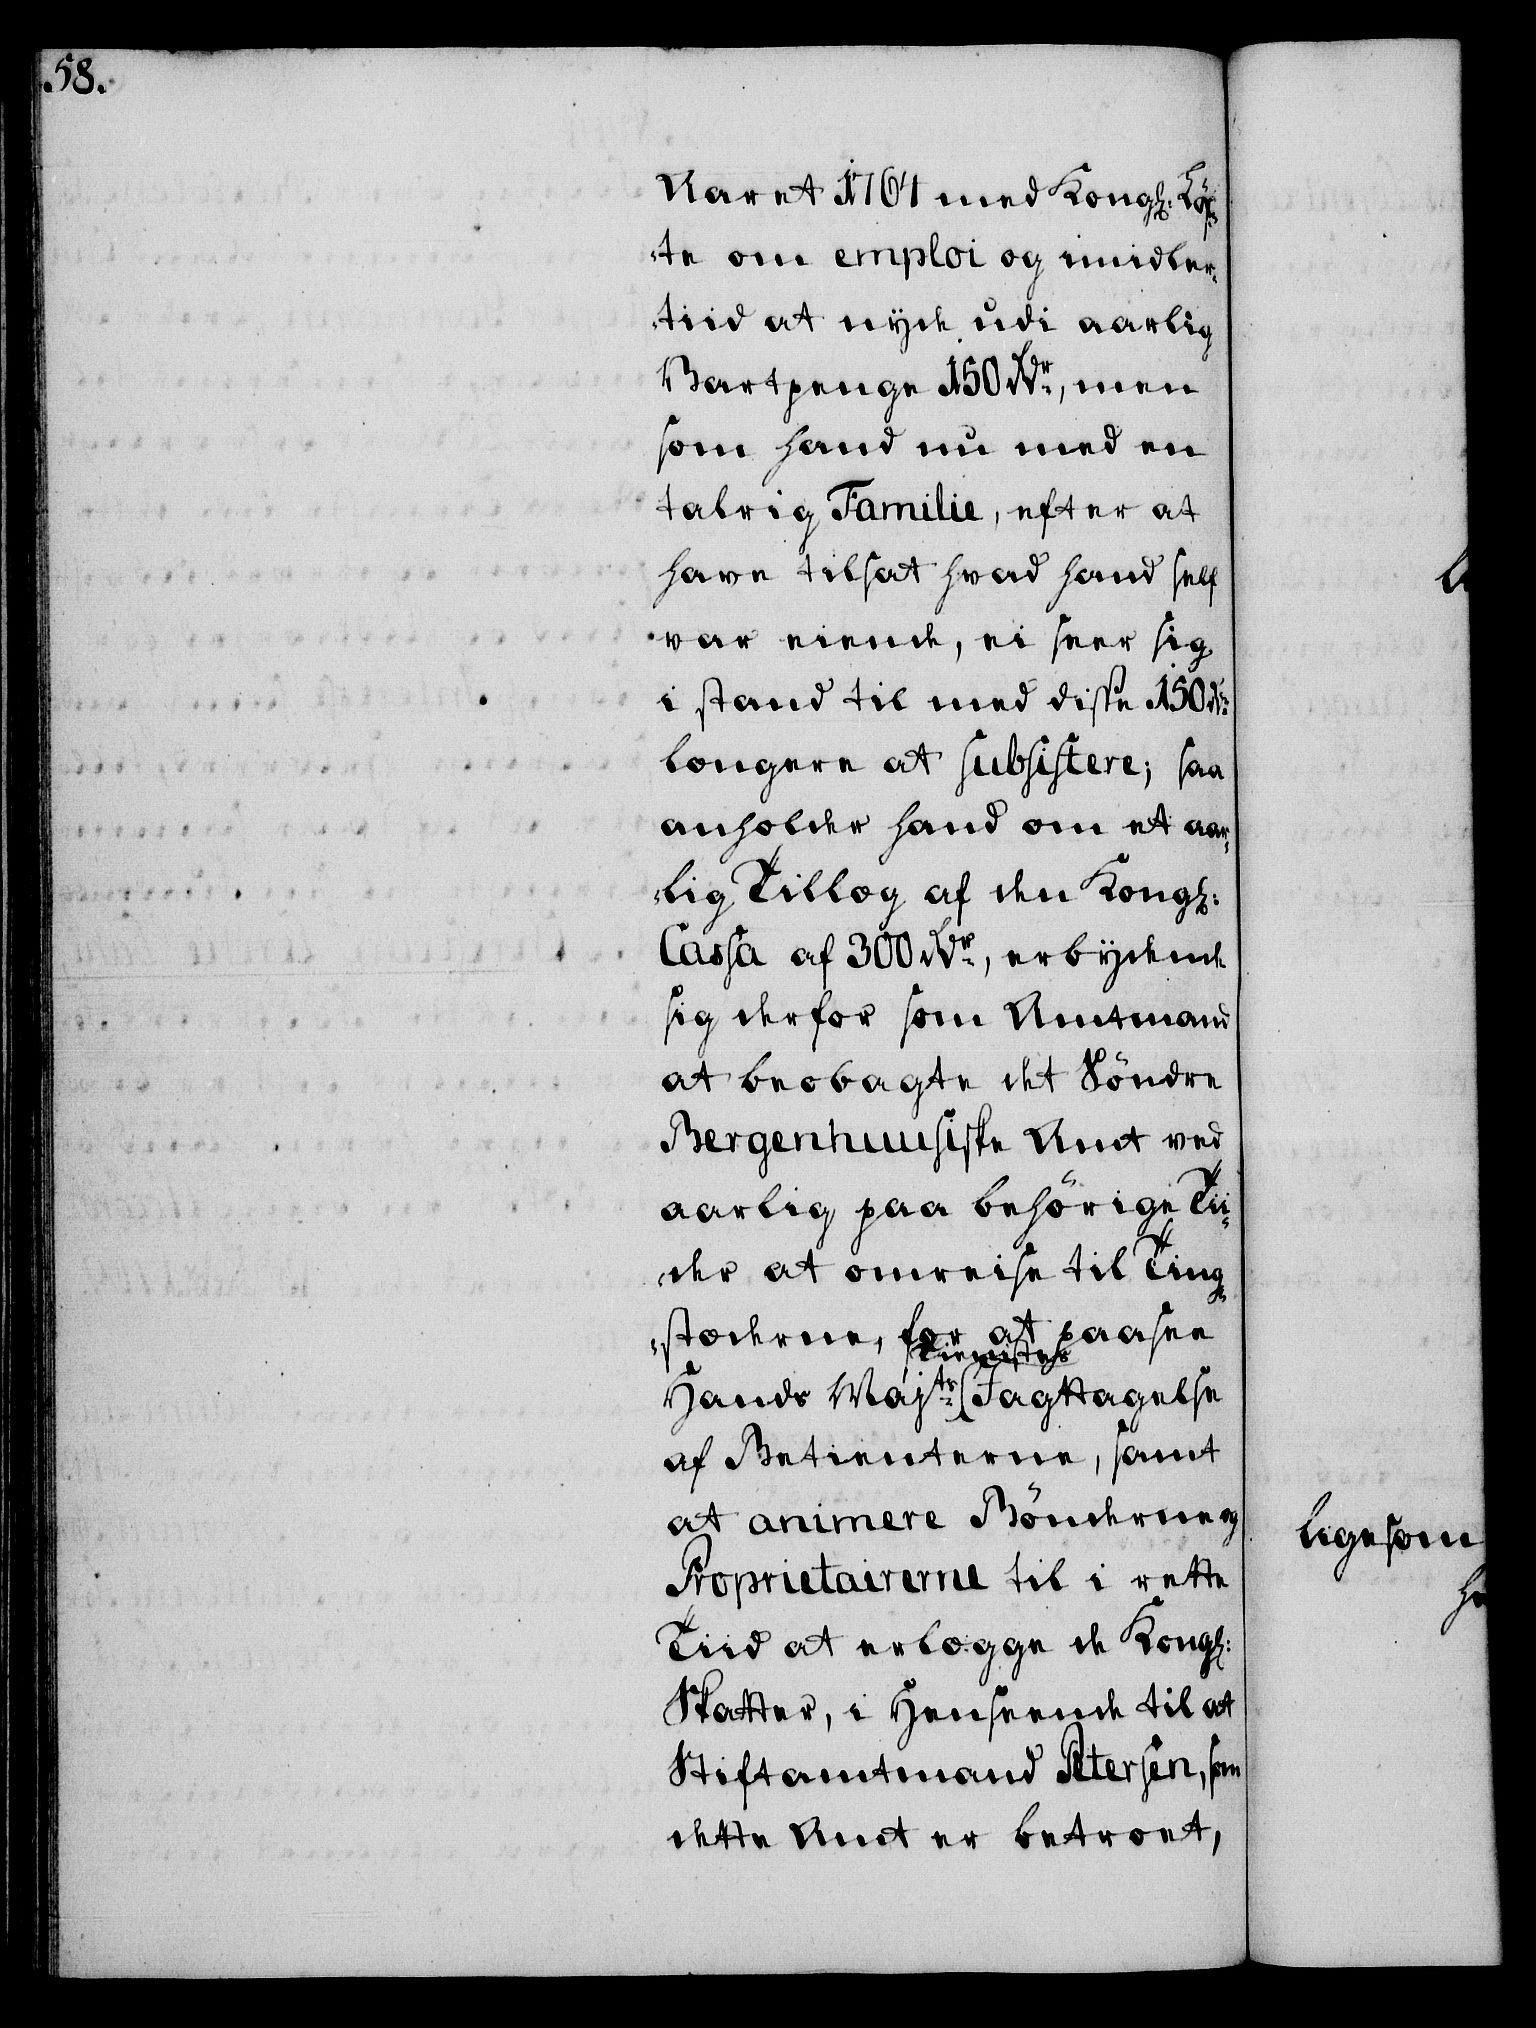 .58.
Aaret 1764 med Kongl: Löf-
-te om emploi og imidler-
-tiid at nyde udi aarlig
Vartpenge 150 Rdr, men
som hand nu med en
talrig Familie, efter at
have tilsat hvad hand self
var eiende, ei seer sig
i stand til med disse 150 Rdr
længere at subsistere; saa
anholder hand om et aar-
-lig Tillæg af den Kongl:
Cassa af 300 Rdr, erbydende
sig derfor som Amtmand
at beobagte det Söndre
Bergenhuusiske Amt ved
aarlig paa behörige Tii-
-der at omreise til Ting-
-stæderne, for at paasee
Tienistes
Hands Majts Jagttagelse
af Betienterne, samt
at animere Bönderne og
Proprietairerne til i rette
Tiid at erlægge de Kongl:
Skatter, i Henseende til at
Stiftamtmand Petersen, som
dette Amt er betroet,
ligesom